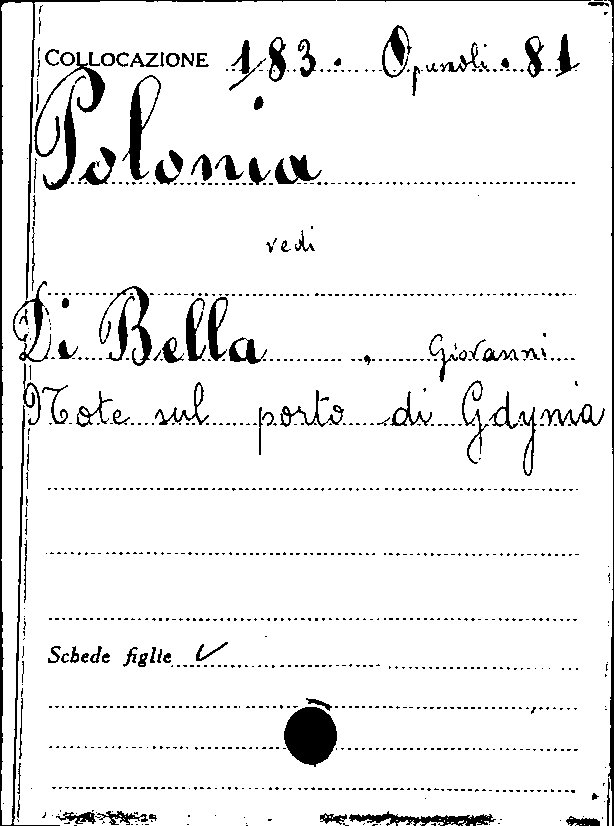 COLLOCAZIONE 183. Opuscoli. 81
Polonia
vedi
Di Bella, Giovanni
Note sul porto di Gdynia
Schede figlie ✓